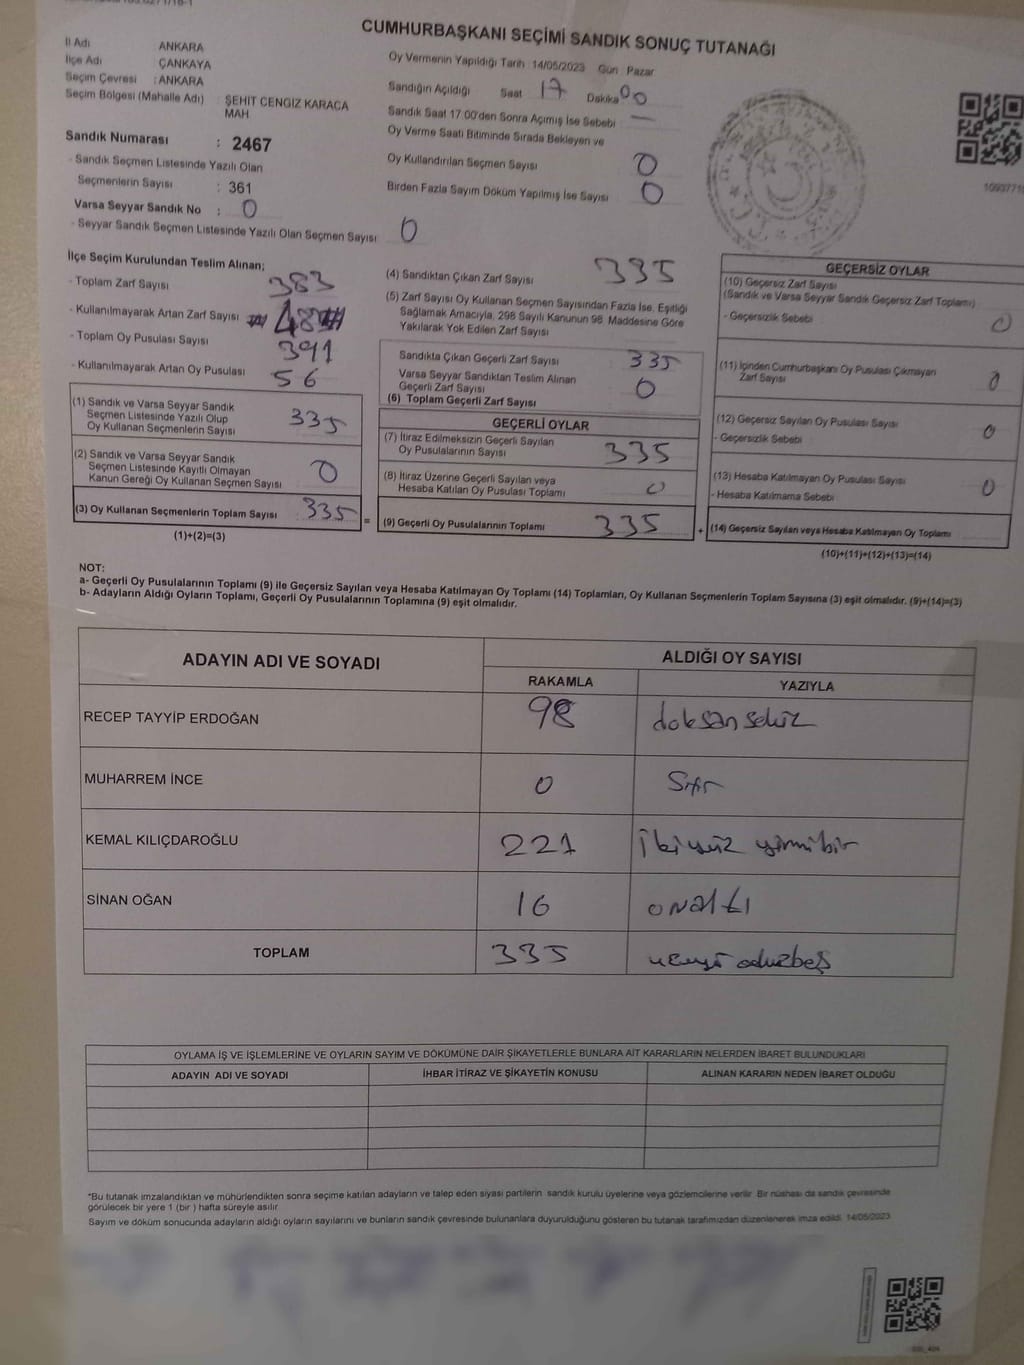 CUMHURBAŞKANI SEÇİMİ SANDIK SONUÇ TUTANAĞI
İl Adı ANKARA
İlçe Adı ÇANKAYA
Seçim Çevresi : ANKARA
Seçim Bölgesi (Mahalle Adı) : ŞEHİT CENGİZ KARACA
MAH
Sandık Numarası : 2467
- Sandık Seçmen Listesinde Yazılı Olan
Seçmenlerin Sayısı : 361
Varsa Seyyar Sandık No : 0
- Seyyar Sandık Seçmen Listesinde Yazılı Olan Seçmen Sayısı 0
Oy Vermenin Yapıldığı Tarih : 14/05/2023 Gün : Pazar
Sandığın Açıldığı Saat 17 Dakika 00
Sandık Saat 17:00'den Sonra Açımış İse Sebebi —
Oy Verme Saati Bitiminde Sırada Bekleyen ve
Oy Kullandırılan Seçmen Sayısı 0
Birden Fazla Sayım Döküm Yapılmış İse Sayısı 0
İlçe Seçim Kurulundan Teslim Alınan;
- Toplam Zarf Sayısı 383
- Kullanılmayarak Artan Zarf Sayısı 48
- Toplam Oy Pusulası Sayısı 391
- Kullanılmayarak Artan Oy Pusulası 56
(1) Sandık ve Varsa Seyyar Sandık
Seçmen Listesinde Yazılı Olup
Oy Kullanan Seçmenlerin Sayısı 335
(2) Sandık ve Varsa Seyyar Sandık
Seçmen Listesinde Kayıtlı Olmayan
Kanun Gereği Oy Kullanan Seçmen Sayısı 0
(3) Oy Kullanan Seçmenlerin Toplam Sayısı 335
(1)+(2)=(3)
=
(4) Sandıktan Çıkan Zarf Sayısı 335
(5) Zarf Sayısı Oy Kullanan Seçmen Sayısından Fazla İse, Eşitliği
Sağlamak Amacıyla, 298 Sayılı Kanunun 98. Maddesine Göre
Yakılarak Yok Edilen Zarf Sayısı
Sandıkta Çıkan Geçerli Zarf Sayısı 335
Varsa Seyyar Sandıktan Teslim Alınan
Geçerli Zarf Sayısı 0
(6) Toplam Geçerli Zarf Sayısı
GEÇERLİ OYLAR
(7) İtiraz Edilmeksizin Geçerli Sayılan
Oy Pusulalarının Sayısı 335
(8) İtiraz Üzerine Geçerli Sayılan veya
Hesaba Katılan Oy Pusulası Toplamı 0
(9) Geçerli Oy Pusulalarının Toplamı 335
+
GEÇERSİZ OYLAR
(10) Geçersiz Zarf Sayısı
(Sandık ve Varsa Seyyar Sandık Geçersiz Zarf Toplamı)
- Geçersizlik Sebebi 0
(11) İçinden Cumhurbaşkanı Oy Pusulası Çıkmayan
Zarf Sayısı 0
(12) Geçersiz Sayılan Oy Pusulası Sayısı 0
- Geçersizlik Sebebi
(13) Hesaba Katılmayan Oy Pusulası Sayısı 0
- Hesaba Katılmama Sebebi
(14) Geçersiz Sayılan veya Hesaba Katılmayan Oy Toplamı
(10)+(11)+(12)+(13)=(14)
NOT:
a- Geçerli Oy Pusulalarının Toplamı (9) ile Geçersiz Sayılan veya Hesaba Katılmayan Oy Toplamı (14) Toplamları, Oy Kullanan Seçmenlerin Toplam Sayısına (3) eşit olmalıdır. (9)+(14)=(3)
b- Adayların Aldığı Oyların Toplamı, Geçerli Oy Pusulalarının Toplamına (9) eşit olmalıdır.
ADAYIN ADI VE SOYADI ALDIĞI OY SAYISI
RAKAMLA YAZIYLA
RECEP TAYYİP ERDOĞAN 98 doksan sekiz
MUHARREM İNCE 0 Sıfır
KEMAL KILIÇDAROĞLU 221 ikiyüz yirmibir
SİNAN OĞAN 16 onaltı
TOPLAM 335 üçyüz otuzbeş
OYLAMA İŞ VE İŞLEMLERİNE VE OYLARIN SAYIM VE DÖKÜMÜNE DAİR ŞİKAYETLERLE BUNLARA AİT KARARLARIN NELERDEN İBARET BULUNDUKLARI
ADAYIN ADI VE SOYADI İHBAR İTİRAZ VE ŞİKAYETİN KONUSU ALINAN KARARIN NEDEN İBARET OLDUĞU
*Bu tutanak imzalandıktan ve mühürlendikten sonra seçime katılan adayların ve talep eden siyasi partilerin sandık kurulu üyelerine veya gözlemcilerine verilir. Bir nüshası da sandık çevresinde
görülecek bir yere 1 (bir ) hafta süreyle asılır
Sayım ve döküm sonucunda adayların aldığı oyların sayılarını ve bunların sandık çevresinde bulunanlara duyurulduğunu gösteren bu tutanak tarafımızdan düzenlenerek imza edildi. 14/05/2023